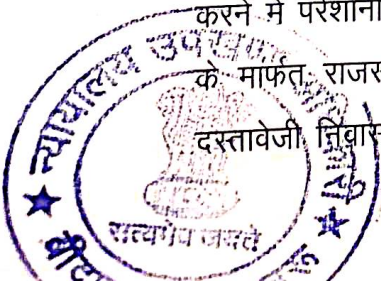 करने में परेशानी
के मार्फत राजस
दस्तावेजी निवास
न्यायालय उपखण्ड
सत्यमेव जयते